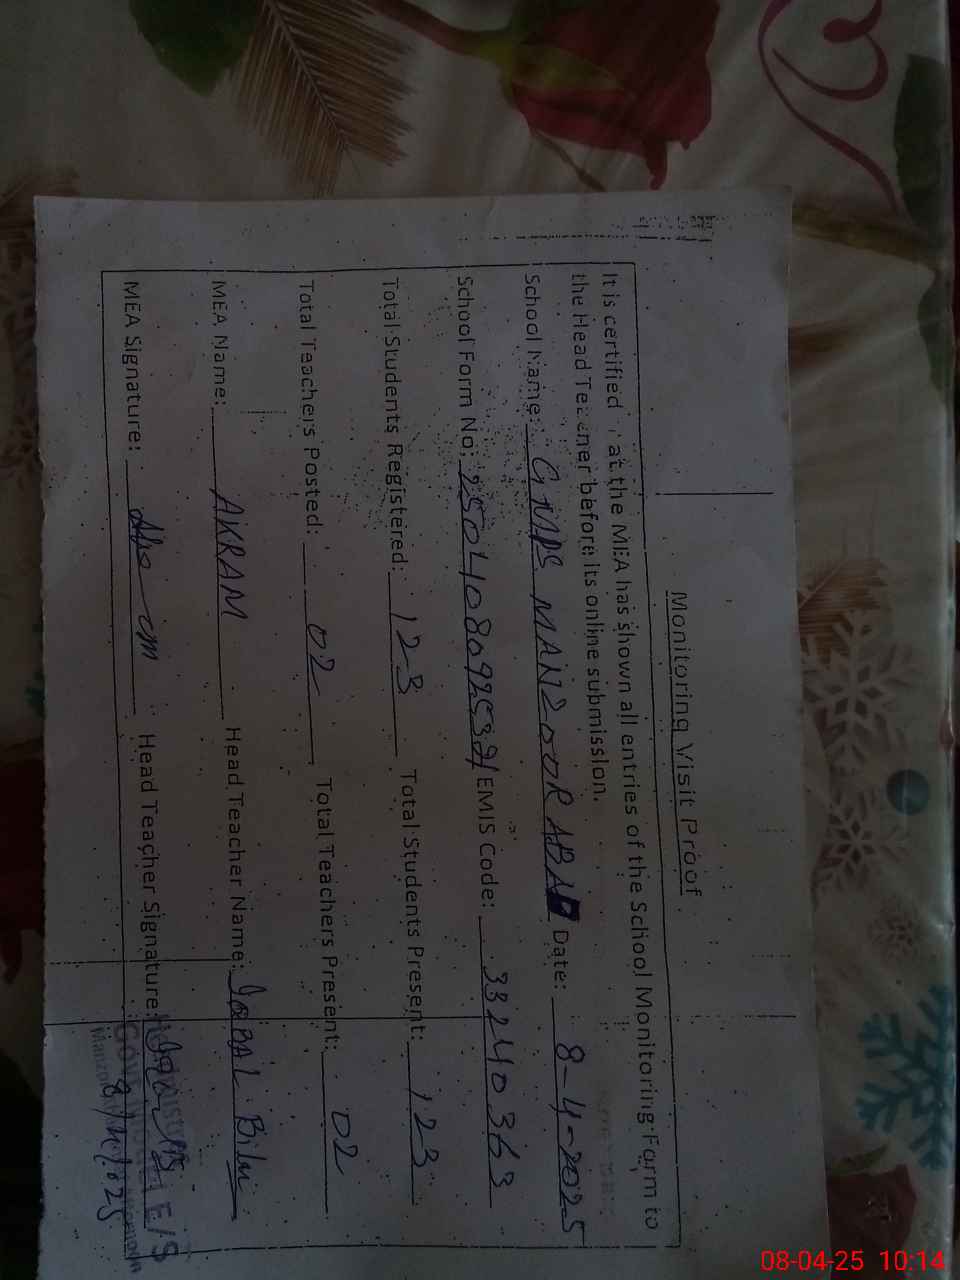 Monitoring Visit Proof
It is certified that the MEA has shown all entries of the School Monitoring Form to
the Head Teacher before its online submission.
School Name: GMPS MANZOOR ABAD Date: 8-4-2025
School Form No: EMIS Code: 33240363
Total Students Registered: 123 Total Students Present: 123
Total Teachers Posted: 02 Total Teachers Present: 02
MEA Name: AKRAM Head Teacher Name: IQBAL Bibi
MEA Signature: Head Teacher Signature:
8/4/025
08-04-25 10:14